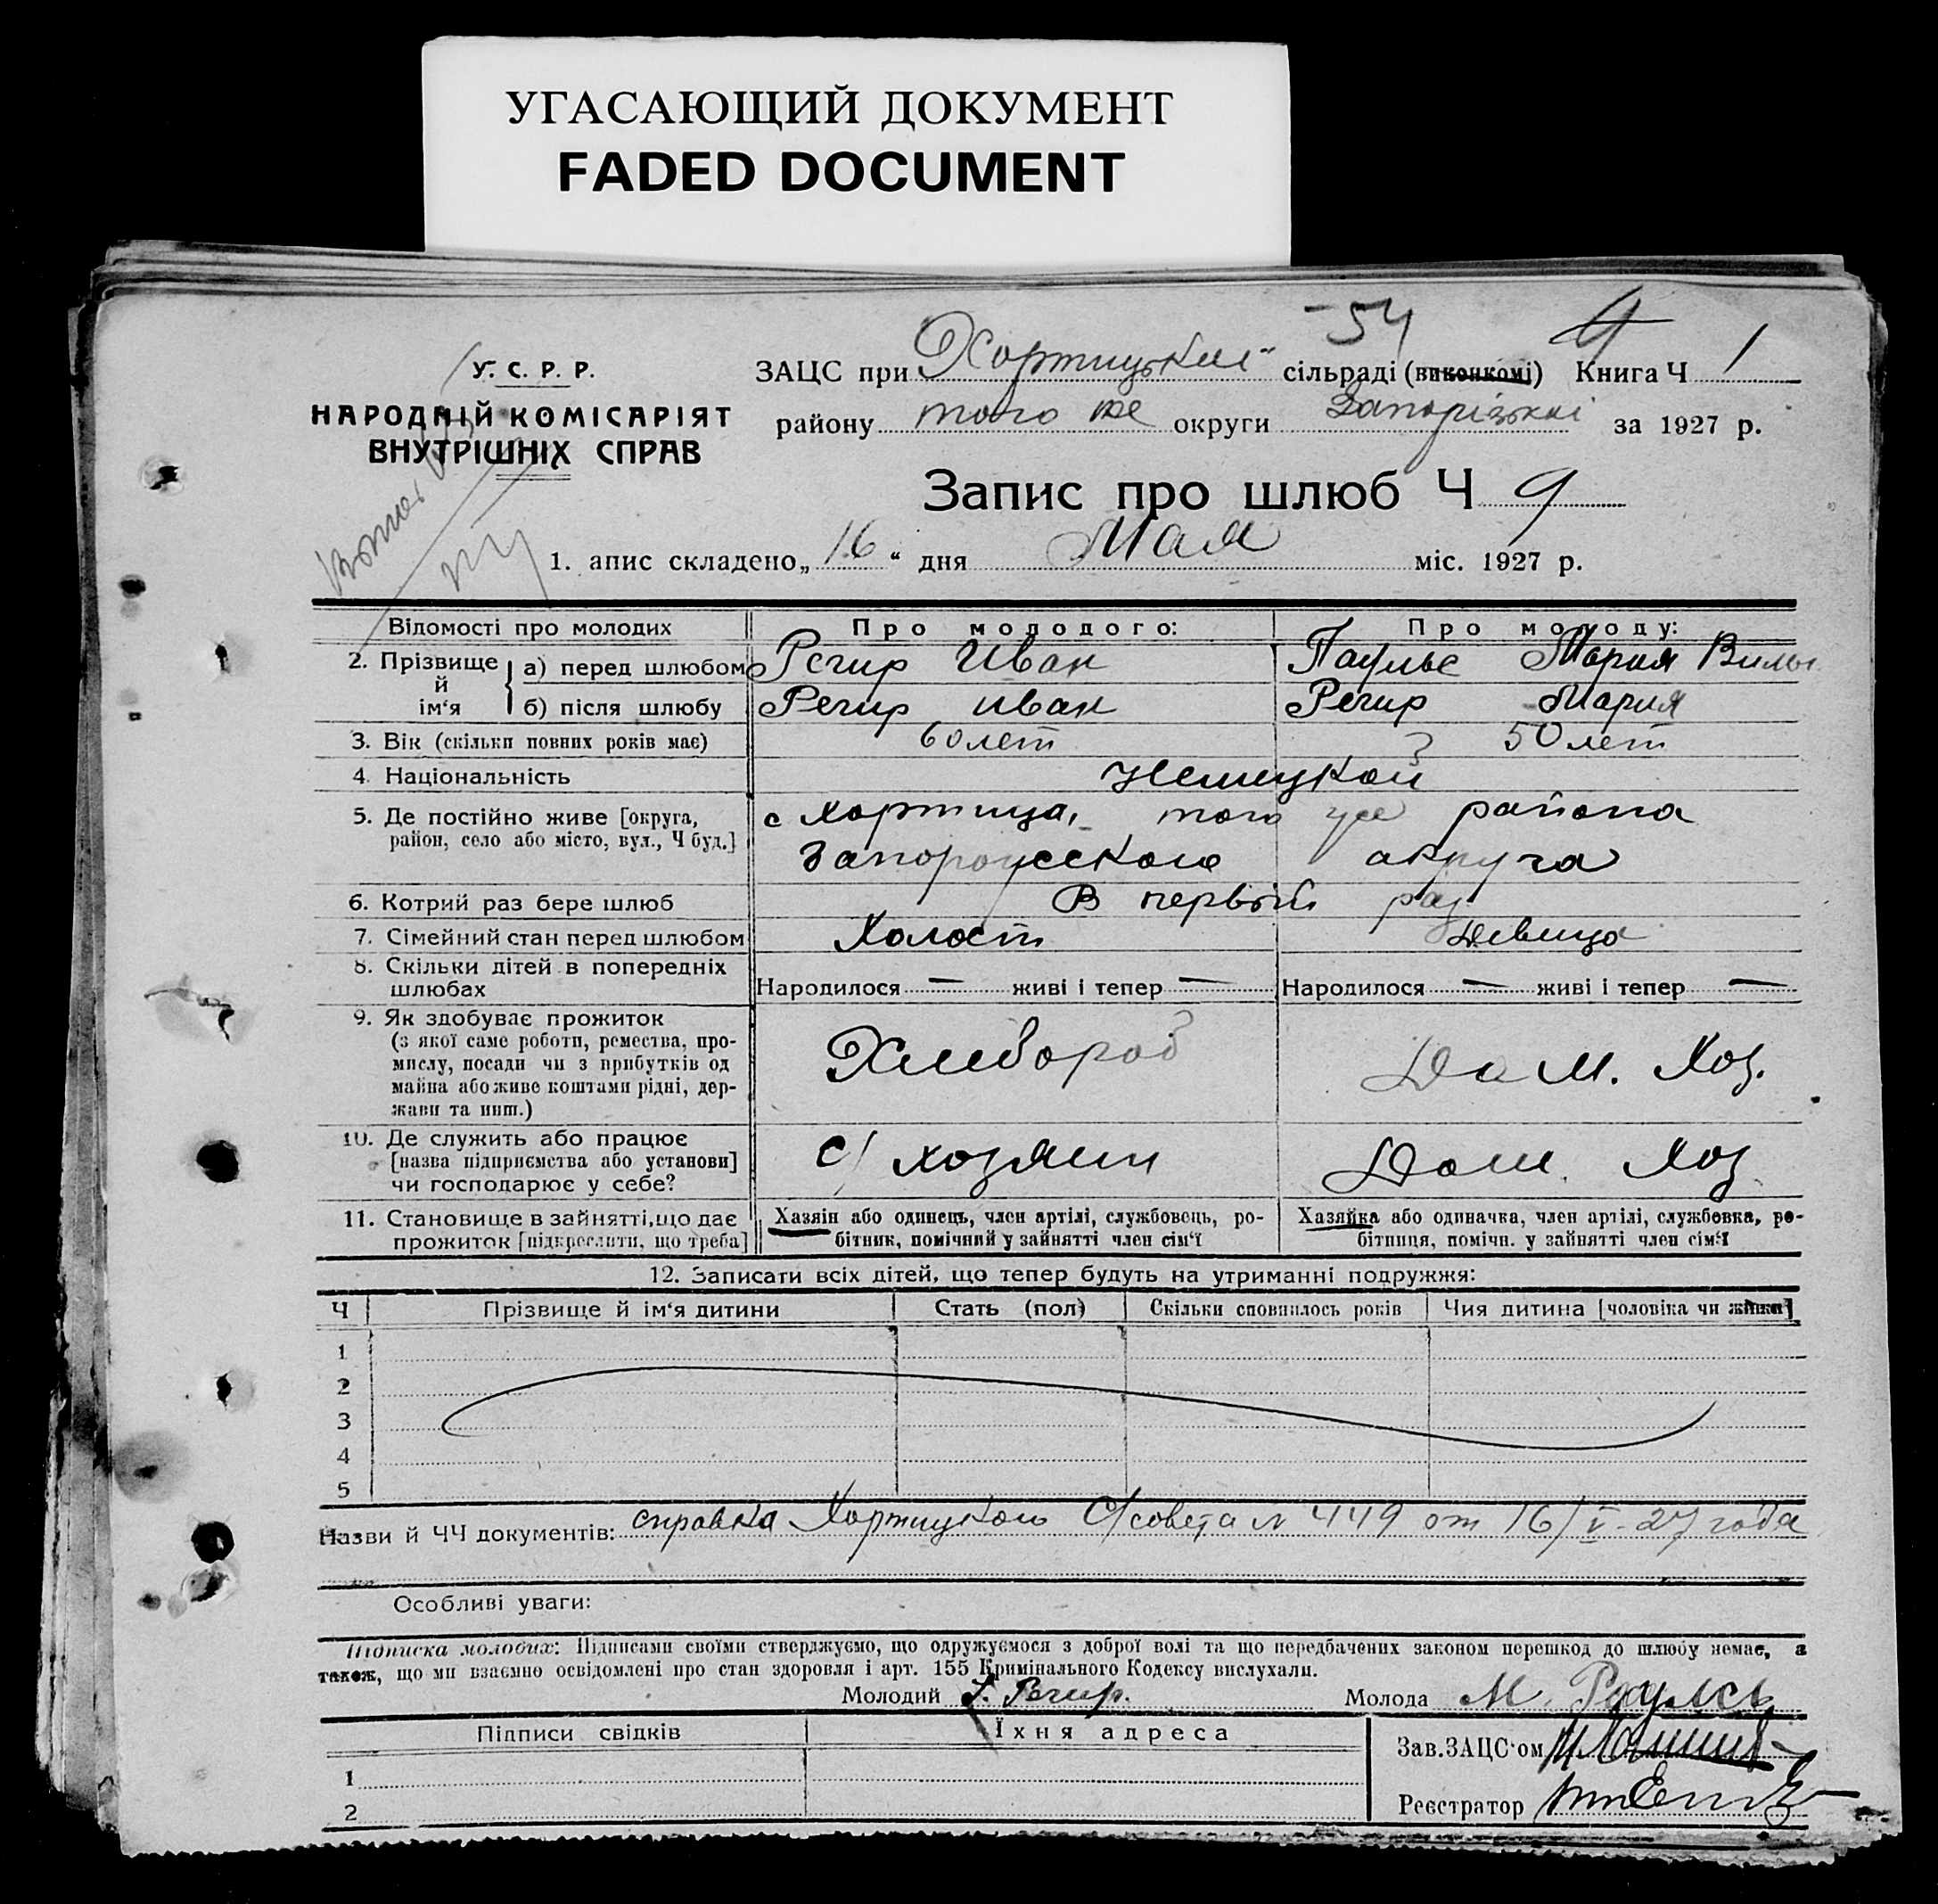 УГАСАЮЩИЙ ДОКУМЕНТ
FADED DOCUMENT
54 4
У. С. Р. Р.
НАРОДНІЙ КОМІСАРІЯТ
ВНУТРІШНІХ СПРАВ
ЗАЦС при Хортицький сільраді (виконкомі) Книга Ч 1
району того же округи Запорізької за 1927 р.
Запис про шлюб Ч 9
1. апис складено „ 16 “ дня Мая міс. 1927 р.
Відомості про молодих Про молодого: Про молоду:
2. Прізвище й ім‘я а) перед шлюбом Регир Иван Паульс Мария Вильг
б) після шлюбу Регир Иван Регир Мария
3. Вік (скільки повних років має) 60 лет 50 лет
4. Національність Немецкой
5. Де постійно живе [округа, с Хортица, того же района
район, село або місто, вул., Ч буд.] Запорожского округа
6. Котрий раз бере шлюб В первый раз
7. Сімейний стан перед шлюбом Холост Девица
8. Скільки дітей в попередніх
шлюбах Народилося — живі і тепер — Народилося — живі і тепер —
9. Як здобуває прожиток
(з якої саме роботи, ремества, про-
мислу, посади чи з прибутків од
майна або живе коштами рідні, дер-
жави та инш.) Хлебороб Дом. Хоз.
10. Де служить або працює
[назва підприємства або установи]
чи господарює у себе? с/ хозяин Дом. Хоз.
11. Становище в зайнятті, що дає Хазяін або одинець, член артілі, службовець, ро- Хазяйка або одиначка, член артілі, службовка, ро-
прожиток [підкреслити, що треба] бітник, помічний у зайнятті член сім‘ї бітниця, помічн. у зайнятті член сім‘ї
12. Записати всіх дітей, що тепер будуть на утриманні подружжя:
Ч Прізвище й ім‘я дитини Стать (пол) Скільки сповнилось років Чия дитина [чоловіка чи жінки]
1
2
3
4
5
Назви й ЧЧ документів: справка Хортицкого С/совета № 449 от 16/V-27 года
Особливі уваги:
Підписка молодих: Підписами своїми стверджуємо, що одружуємося з доброї волі та що передбачених законом перешкод до шлюбу немає, а
також, що ми взаємно освідомлені про стан здоровля і арт. 155 Кримінального Кодексу вислухали.
Молодий І. Регир. Молода М. Паульс
Підписи свідків Їхня адреса
Зав. ЗАЦС‘ом
1
Реєстратор
2